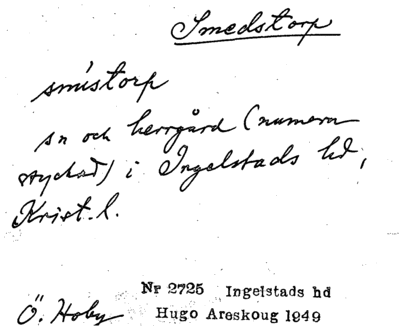 Smedstorp
smistorp
sn och herrgård (numera
styckad) i Ingelstads hd,
Krist. l.
Nr 2725 Ingelstads hd
Ö. Hoby Hugo Areskoug 1949